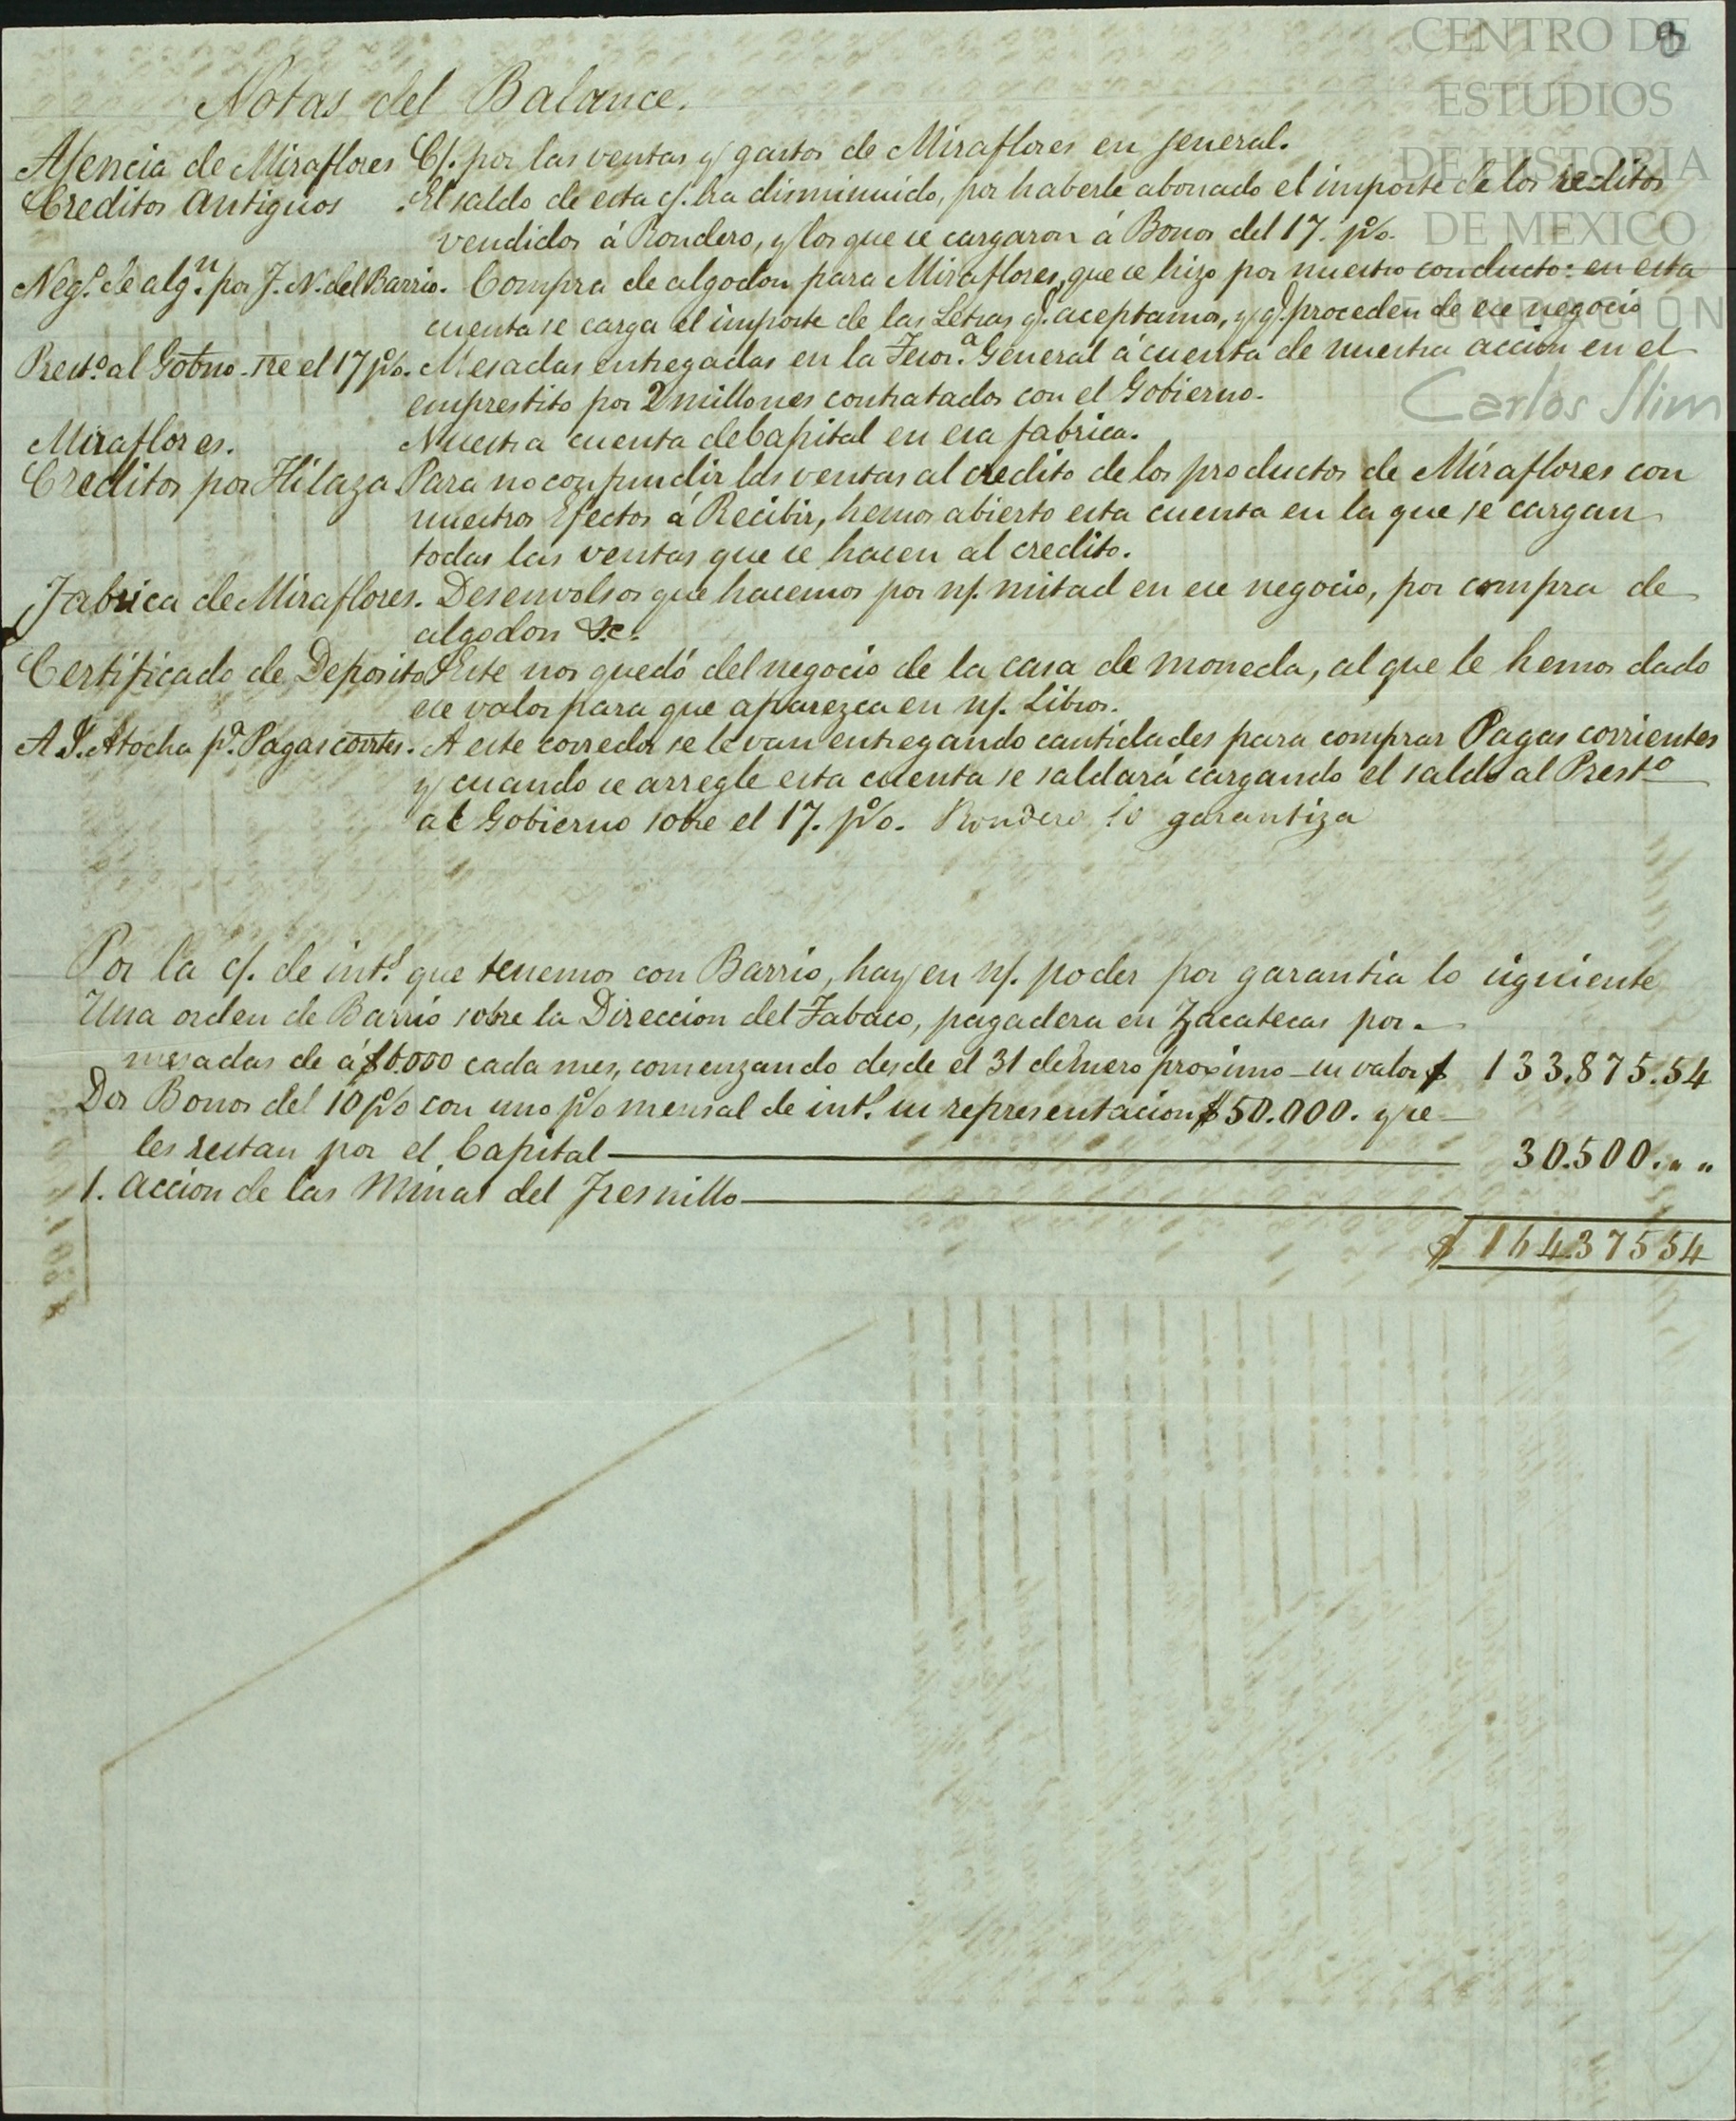 CENTRO DE
ESTUDIOS
DE HISTORIA
DE MEXICO
FUNDACIÓN
Carlos Slim
Notas del Balance.
Agencia de Miraflores C/. por las ventas y gastos de Miraflores en general.
Creditos Antiguos . El saldo de esta c/. ha disminuido, por haberle abonado el importe de los reditos
vendidos á Rondero, y los que se cargaron á Bonos del 17. p%.
Neg.º de alg.n por J. N. del Barrio. Compra de algodon para Miraflores, que se hizo por nuestro conducto: en esta
cuenta se carga el importe de las Letras q.e aceptamos, y q.e proceden de ese negocio
Prest.o al Gobno. sre el 17 p%. Mesadas entregadas en la Tesor.a General á cuenta de nuestra accion en el
emprestito por 2 millones contratados con el Gobierno.
Miraflores. Nuestra cuenta de Capital en esa fabrica.
Creditos por Hilaza Para no confundir las ventas al credito de los productos de Miraflores con
nuestros Efectos á Recibir, hemos abierto esta cuenta en la que se cargan
todas las ventas que se hacen al credito.
Fabrica de Miraflores. Desenvolsos que hacemos por n/. mitad en ese negocio, por compra de
algodon &c.
Certificado de Deposito Este nos quedó del negocio de la casa de moneda, al que le hemos dado
ese valor para que aparezca en n/. Libros.
A J. Atocha p.a Pagas corrtes. A este corredor se le van entregando cantidades para comprar Pagas corrientes
y cuando se arregle esta cuenta se saldará cargando el saldo al Prest.o
al Gobierno sobre el 17. p%. Rondero lo garantiza
Por la c/. de int.s que tenemos con Barrio, hay en n/. poder por garantia lo siguiente
Una orden de Barrio sobre la Direccion del Tabaco, pagadera en Zacatecas por
mesadas de á $6.000 cada mes, comenzando desde el 31 de Enero proximo - su valor $ 133.875.54
Dos Bonos del 10 p% con uno p% mensal de int.s su representacion $50.000. y se
les restan por el Capital 30.500. " "
1. Accion de las Minas del Fresnillo
$ 164.375 54